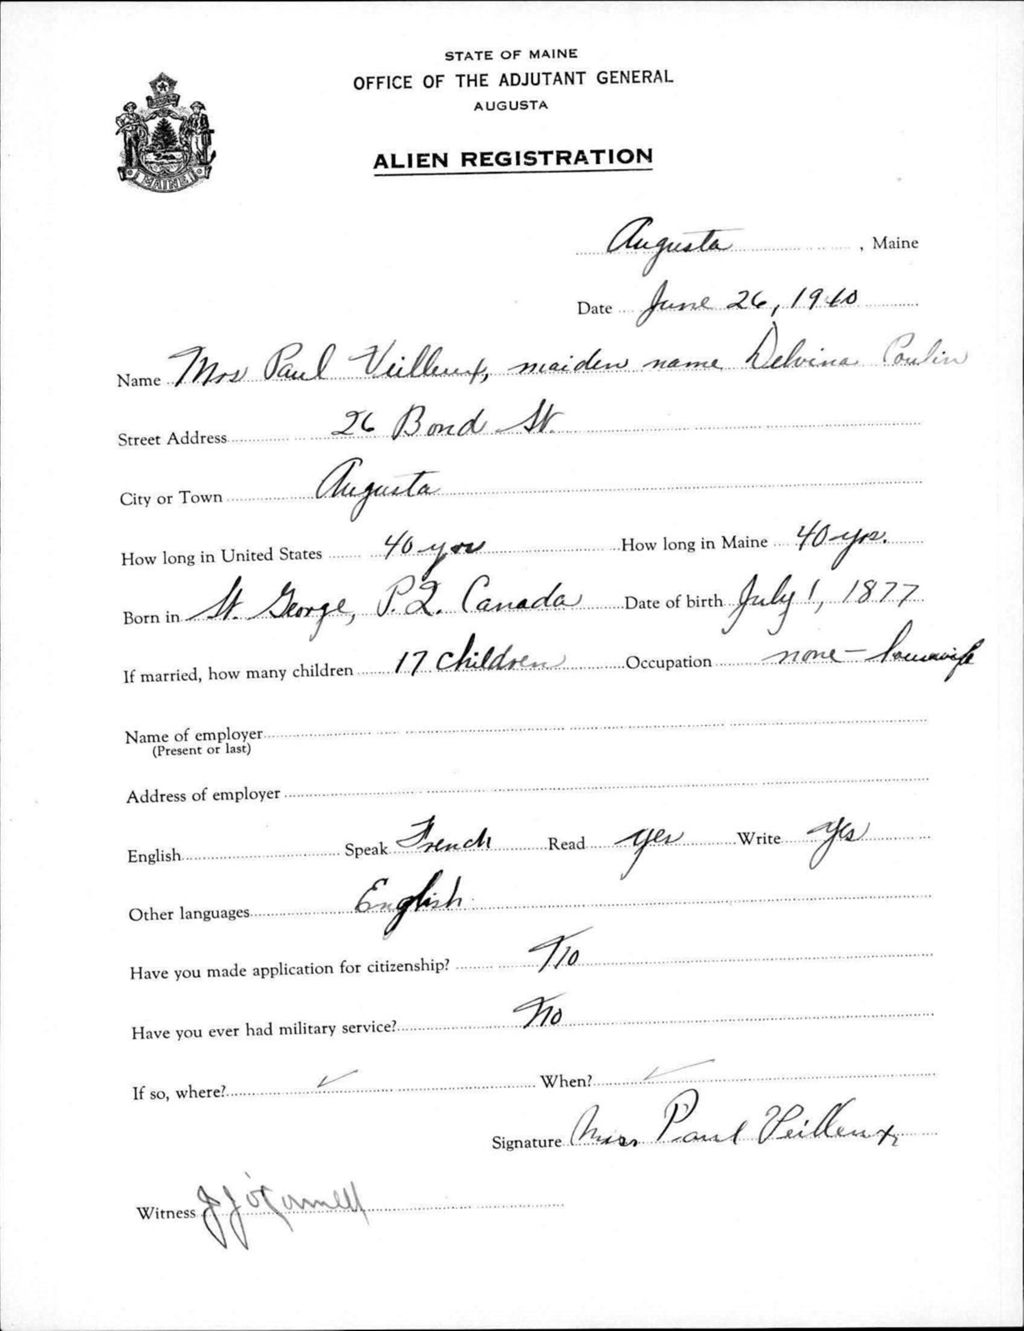 STATE OF MAINE
OFFICE OF THE ADJUTANT GENERAL
AUGUSTA
ALIEN REGISTRATION
MAINE
Augusta, Maine
Date June 26, 1940
Name Mrs Paul Veilleux, maiden name Delvina Poulin
Street Address 26 Bond St.
City or Town Augusta
How long in United States 40 yrs How long in Maine 40 yrs.
Born in St. George, P.Q. Canada Date of birth July 1, 1877
If married, how many children 17 children Occupation none - housewife
Name of employer
(Present or last)
Address of employer
English Speak French Read yes Write yes
Other languages English
Have you made application for citizenship? No
Have you ever had military service? No
If so, where? ✓ When? ✓
Signature Mrs Paul Veilleux
Witness J J O'Connell